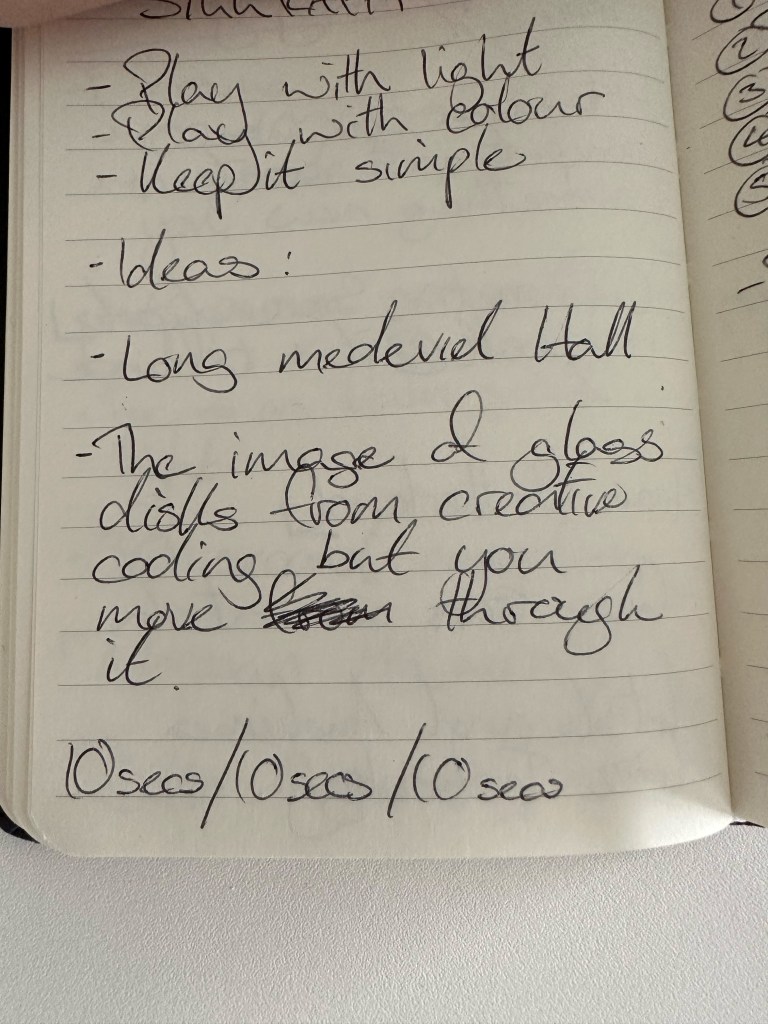 - Play with light
- Play with colour
- Keep it simple
- Ideas:
- Long medeviel Hall
- The image of glass
disks from creative
coding, but you
move through
it.
10secs/10secs/10secs
1
2
3
4
5
-